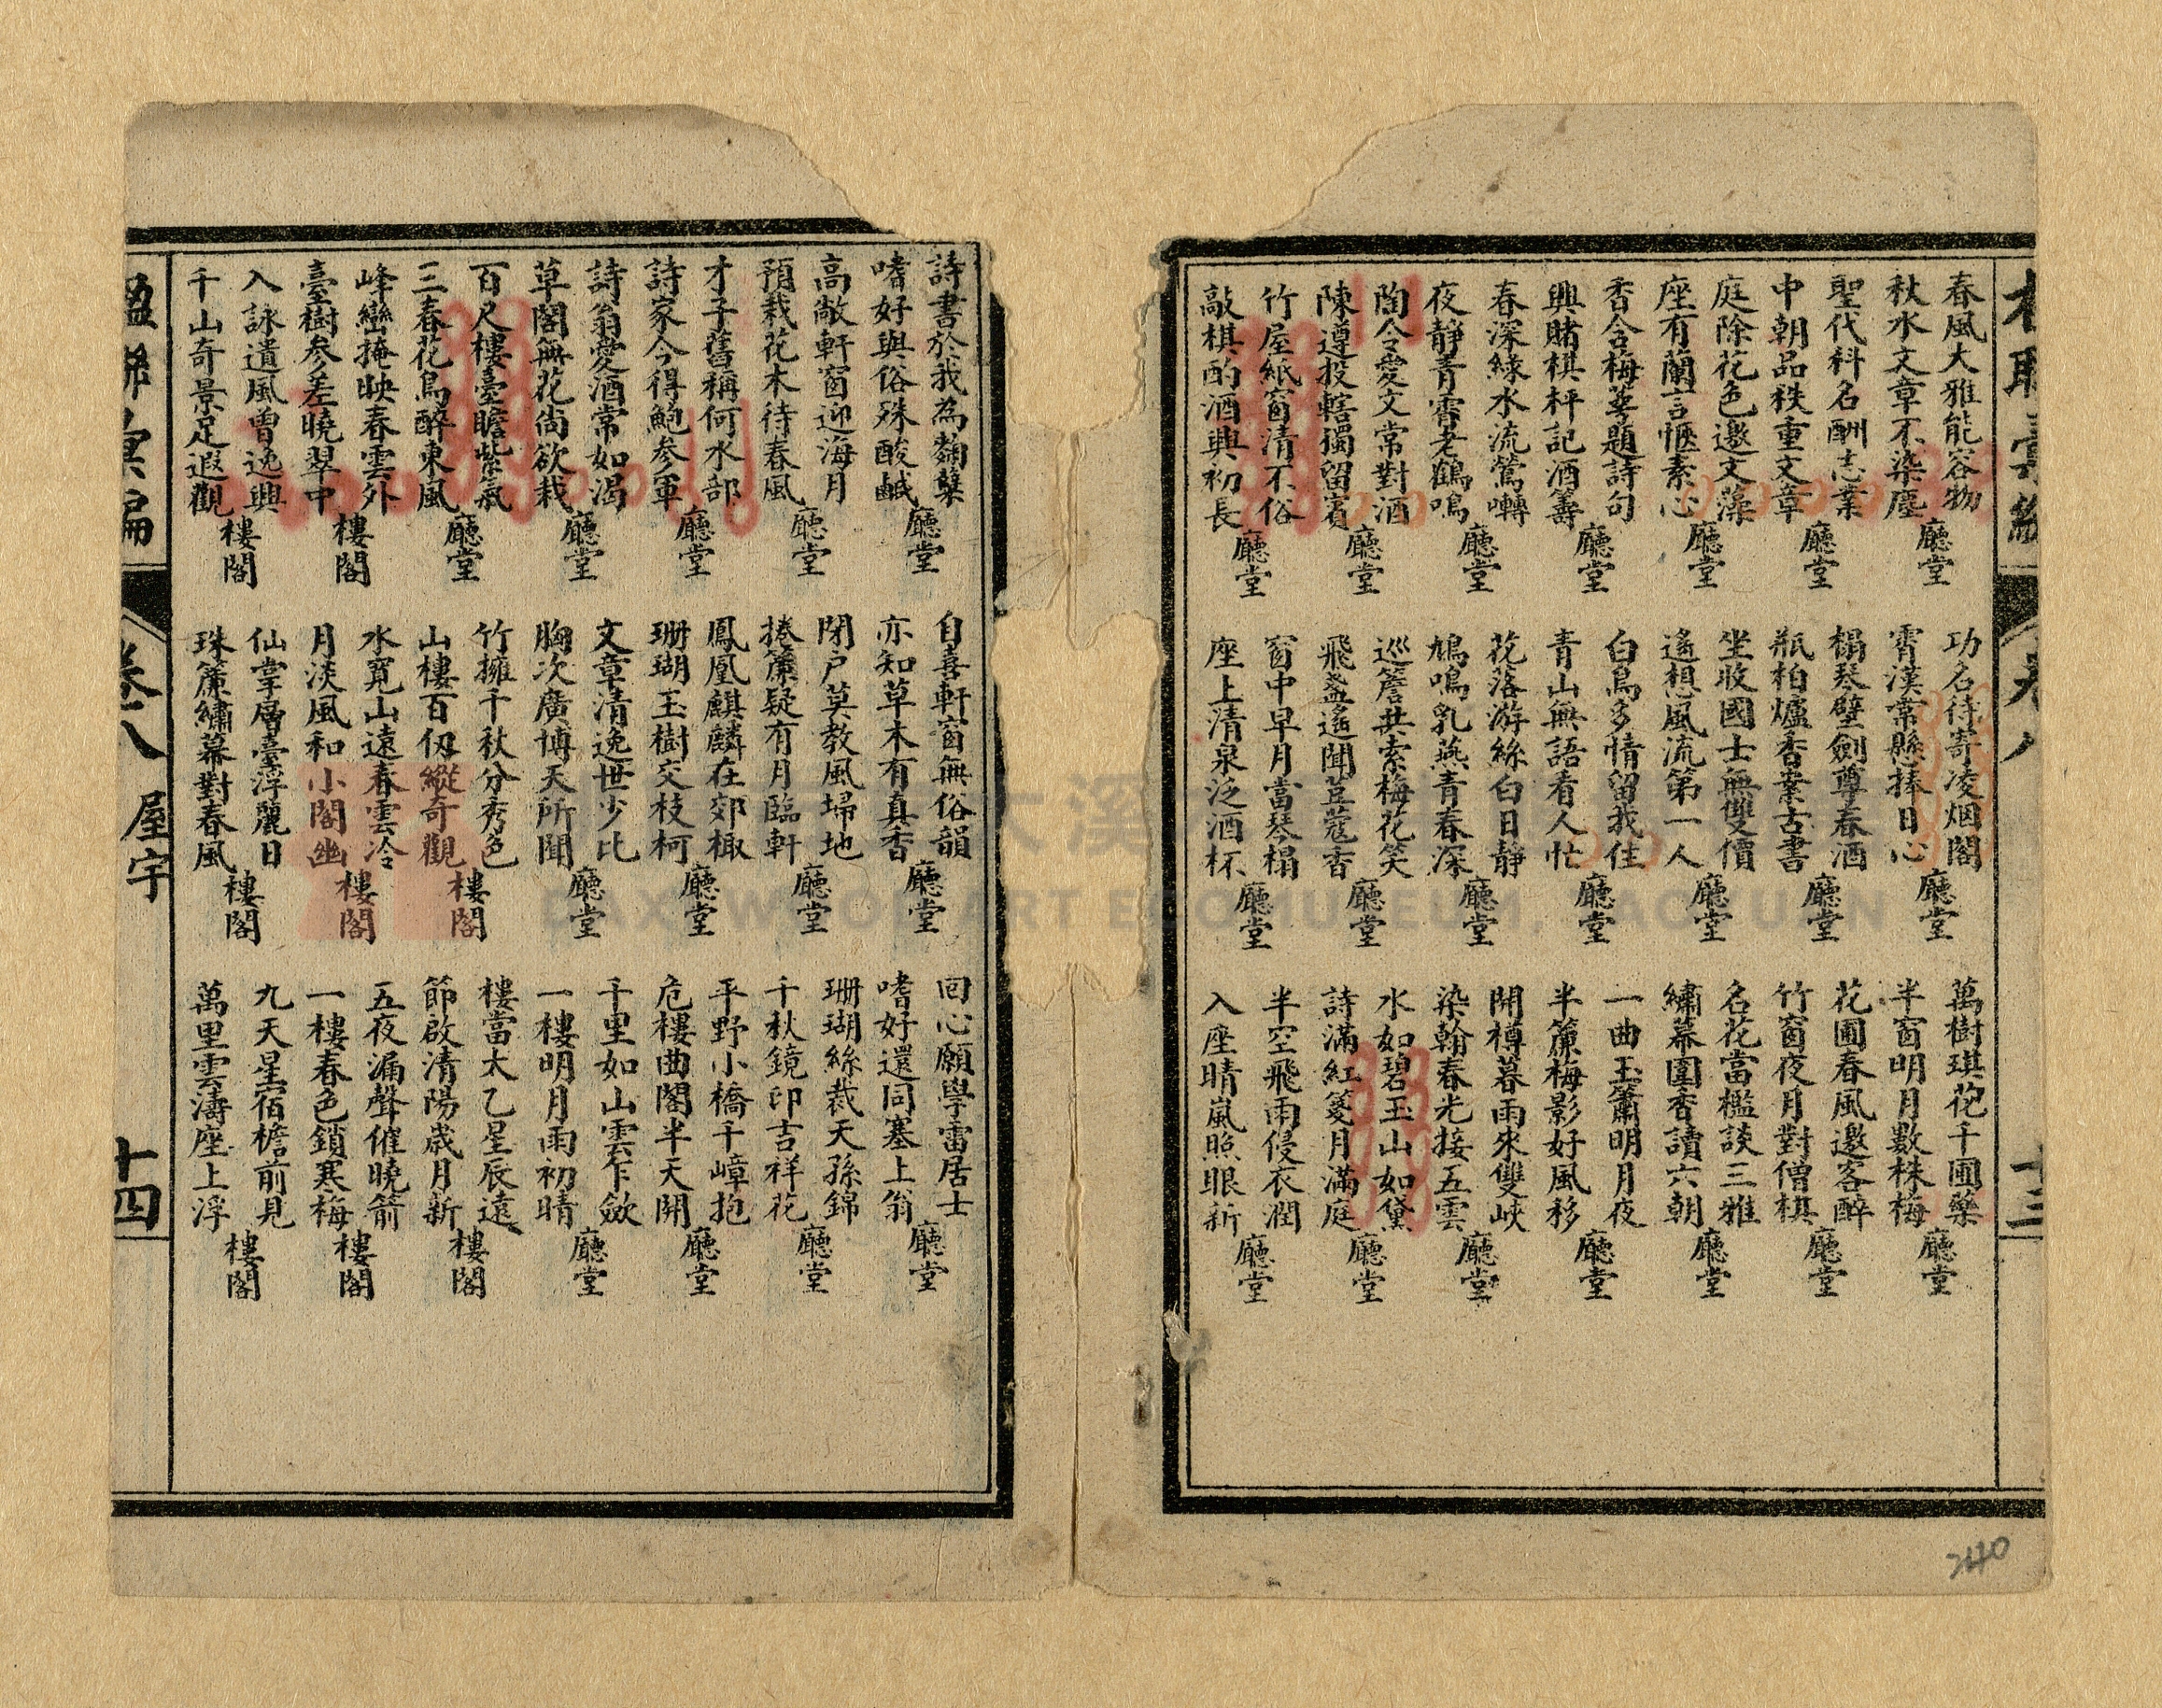 卷八
十三
春風大雅能容物
秋水文章不染塵
廳堂
聖代科名酬志業
中朝品秩重文章
廳堂
庭除花色邀文藻
座有蘭言愜素心
廳堂
香含梅萼題詩句
興賭棋枰記酒籌
廳堂
春深綠水流鶯囀
夜靜青霄老鶴鳴
廳堂
陶令愛文常對酒
陳遵投轄獨留賓
廳堂
竹屋紙窗清不俗
敲棋酌酒興初長
廳堂
功名待寄凌烟閣
霄漢常懸捧日心
廳堂
榻琴壁劍尊春酒
瓶柏爐香案古書
廳堂
坐收國士無雙價
遙想風流第一人
廳堂
白鳥多情留我住
青山無語看人忙
廳堂
花落游絲白日靜
鳩鳴乳燕青春深
廳堂
巡簷共索梅花笑
飛盞遙聞荳蔻香
廳堂
窗中早月當琴榻
座上清泉泛酒杯
廳堂
萬樹琪花千圃藥
半窗明月數株梅
廳堂
花圃春風邀客醉
竹窗夜月對僧棋
廳堂
名花當檻談三雅
繡幕圍香讀六朝
廳堂
一曲玉簫明月夜
半簾梅影好風移
廳堂
開樽暮雨來雙峽
染翰春光接五雲
廳堂
水如碧玉山如黛
詩滿紅箋月滿庭
廳堂
半空飛雨侵衣潤
入座晴嵐照眼新
廳堂
240
詩書於我為麴蘖
嗜好與俗殊酸鹹
廳堂
高敞軒窗迎海月
預栽花木待春風
廳堂
才子舊稱何水部
詩家今得鮑參軍
廳堂
詩翁愛酒常如渴
草閣無花尚欲栽
廳堂
百尺樓臺瞻紫氣
三春花鳥醉東風
廳堂
峰巒掩映春雲外
臺樹參差曉翠中
樓閣
入詠遺風曾逸興
千山奇景足遐觀
樓閣
自喜軒窗無俗韻
亦知草木有真香
廳堂
閉户莫教風埽地
捲簾疑有月臨軒
廳堂
鳳凰麒麟在郊棷
珊瑚玉樹交枝柯
廳堂
文章清逸世少比
胸次廣博天所開
廳堂
竹擁千秋分秀色
山樓百仭縱奇觀
樓閣
水寬山遠春雲冷
月淡風和小閣幽
樓閣
仙掌層臺浮麗日
珠簾繡幕對春風
樓閣
回心願學雷居士
嗜好還同塞上翁
廳堂
珊瑚絲裁天孫錦
千秋鏡印吉祥花
廳堂
平野小橋千嶂抱
危樓曲閣半天開
廳堂
千里如山雲乍歛
一樓明月雨初晴
廳堂
樓當太乙星辰遠
節啟清陽歲月新
樓閣
五夜漏聲催曉箭
一樓春色鎖寒梅
樓閣
九天星宿檐前見
萬里雲濤座上浮
樓閣
楹聯彙編
卷八
屋宇
十四